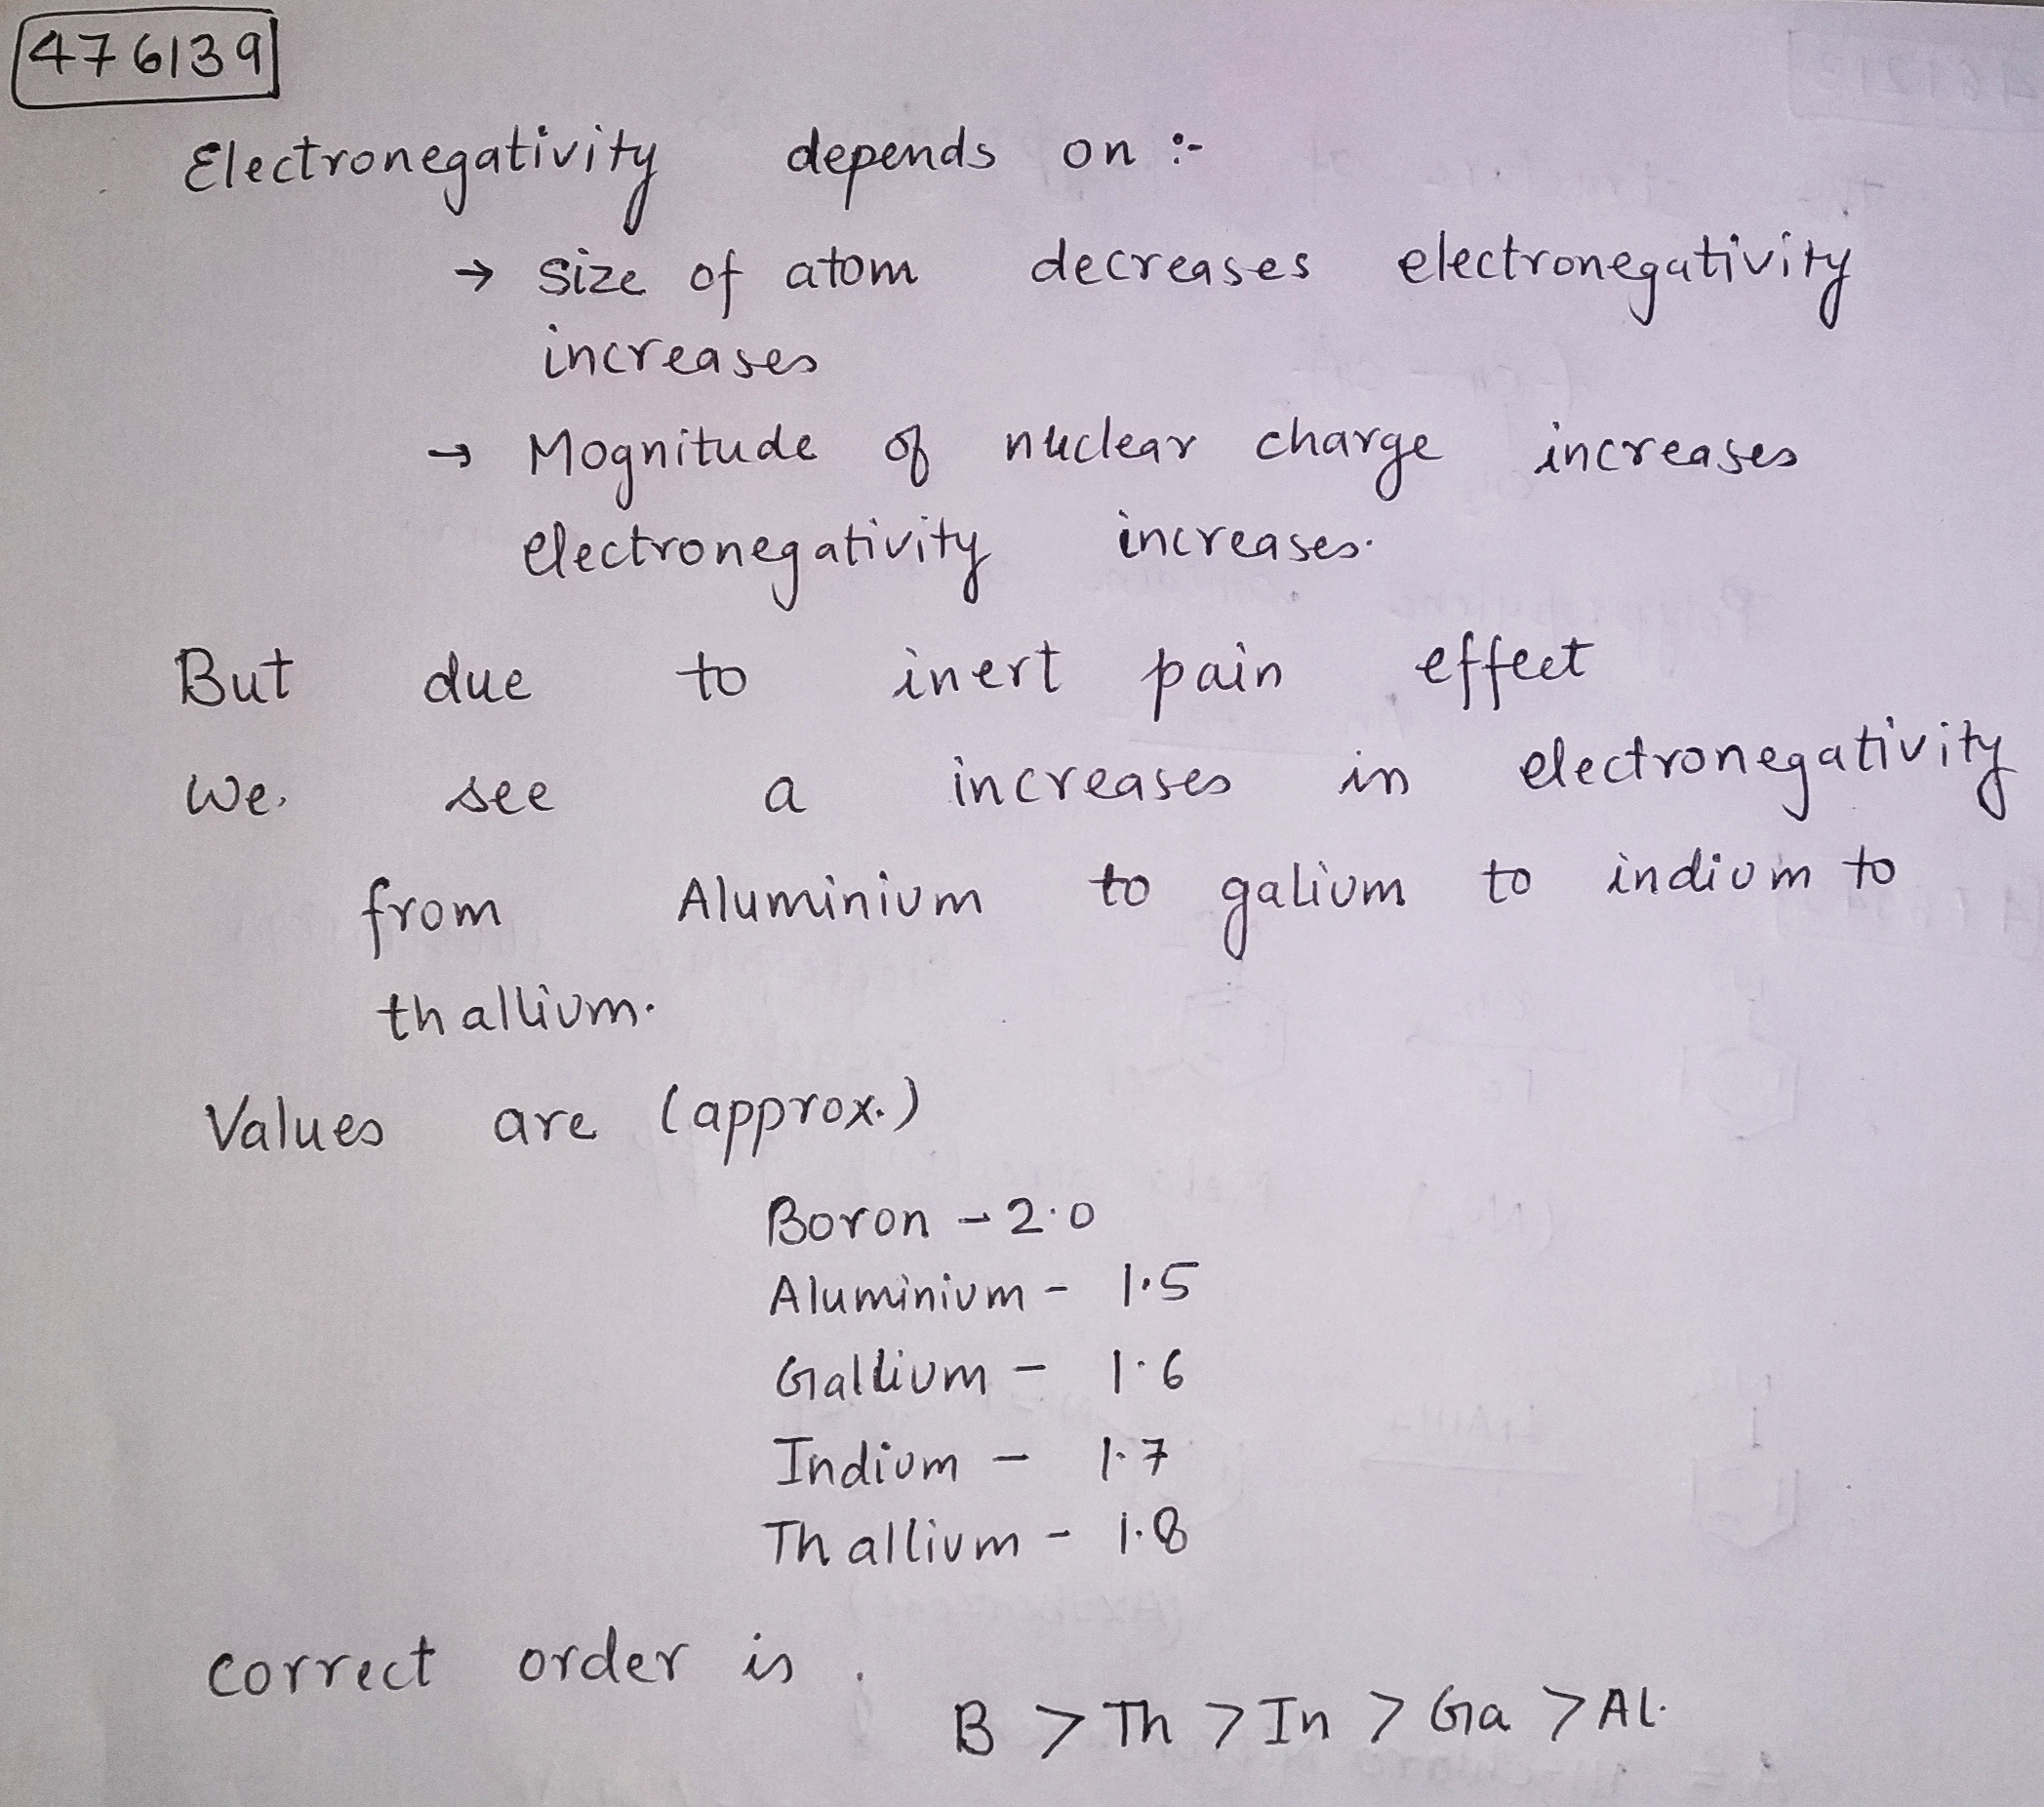 476139
Electronegativity depends on :-
→ Size of atom decreases electronegativity
increases
→ Mognitude of nuclear charge increases
electronegativity increases.
But due to inert pain effect
We see a increases in electronegativity
from Aluminium to galium to indium to
thallium.
Values are (approx.)
Boron - 2.0
Aluminium - 1.5
Gallium - 1.6
Indium - 1.7
Thallium - 1.8
correct order is
B > Th > In > Ga > Al.